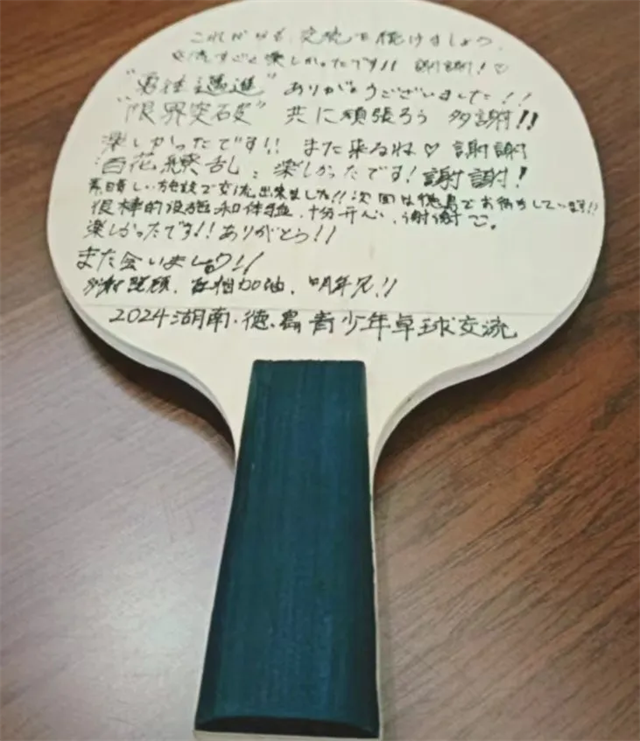 これからも、交流を続けましょう。
交流すごく楽しかったです!! 謝謝!♡
"勇往邁進" ありがとうございました!!
"限界突破" 共に頑張ろう 多謝!!
楽しかったです!! また来るね♡ 謝謝
百花繚乱、楽しかったです!謝謝!
素晴しい施設で交流出来ました!!次回は徳島でお待ちしています!!
很棒的设施和体验,十分开心,谢谢
楽しかったです!!ありがとう!!
また会いましょう!!
互相加油,明年见!!
2024湖南·徳島青少年卓球交流